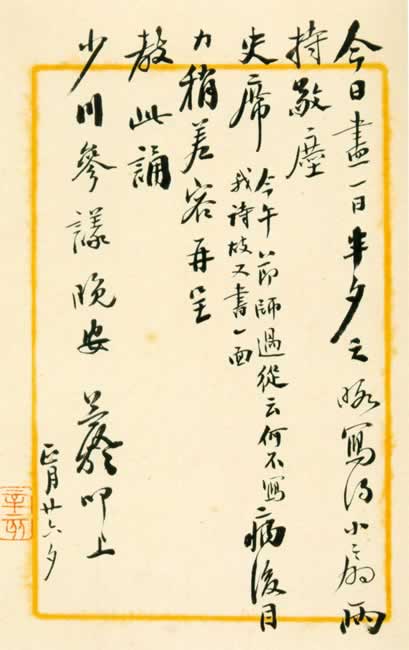 今日盡一日半夕之暇寫得小扇兩
持敬塵
史席
今午節師過從云何不寫
我詩故又書一面
病後目
力稍差容再呈
教此誦
少川參議晚安 叩上
正月廿六夕